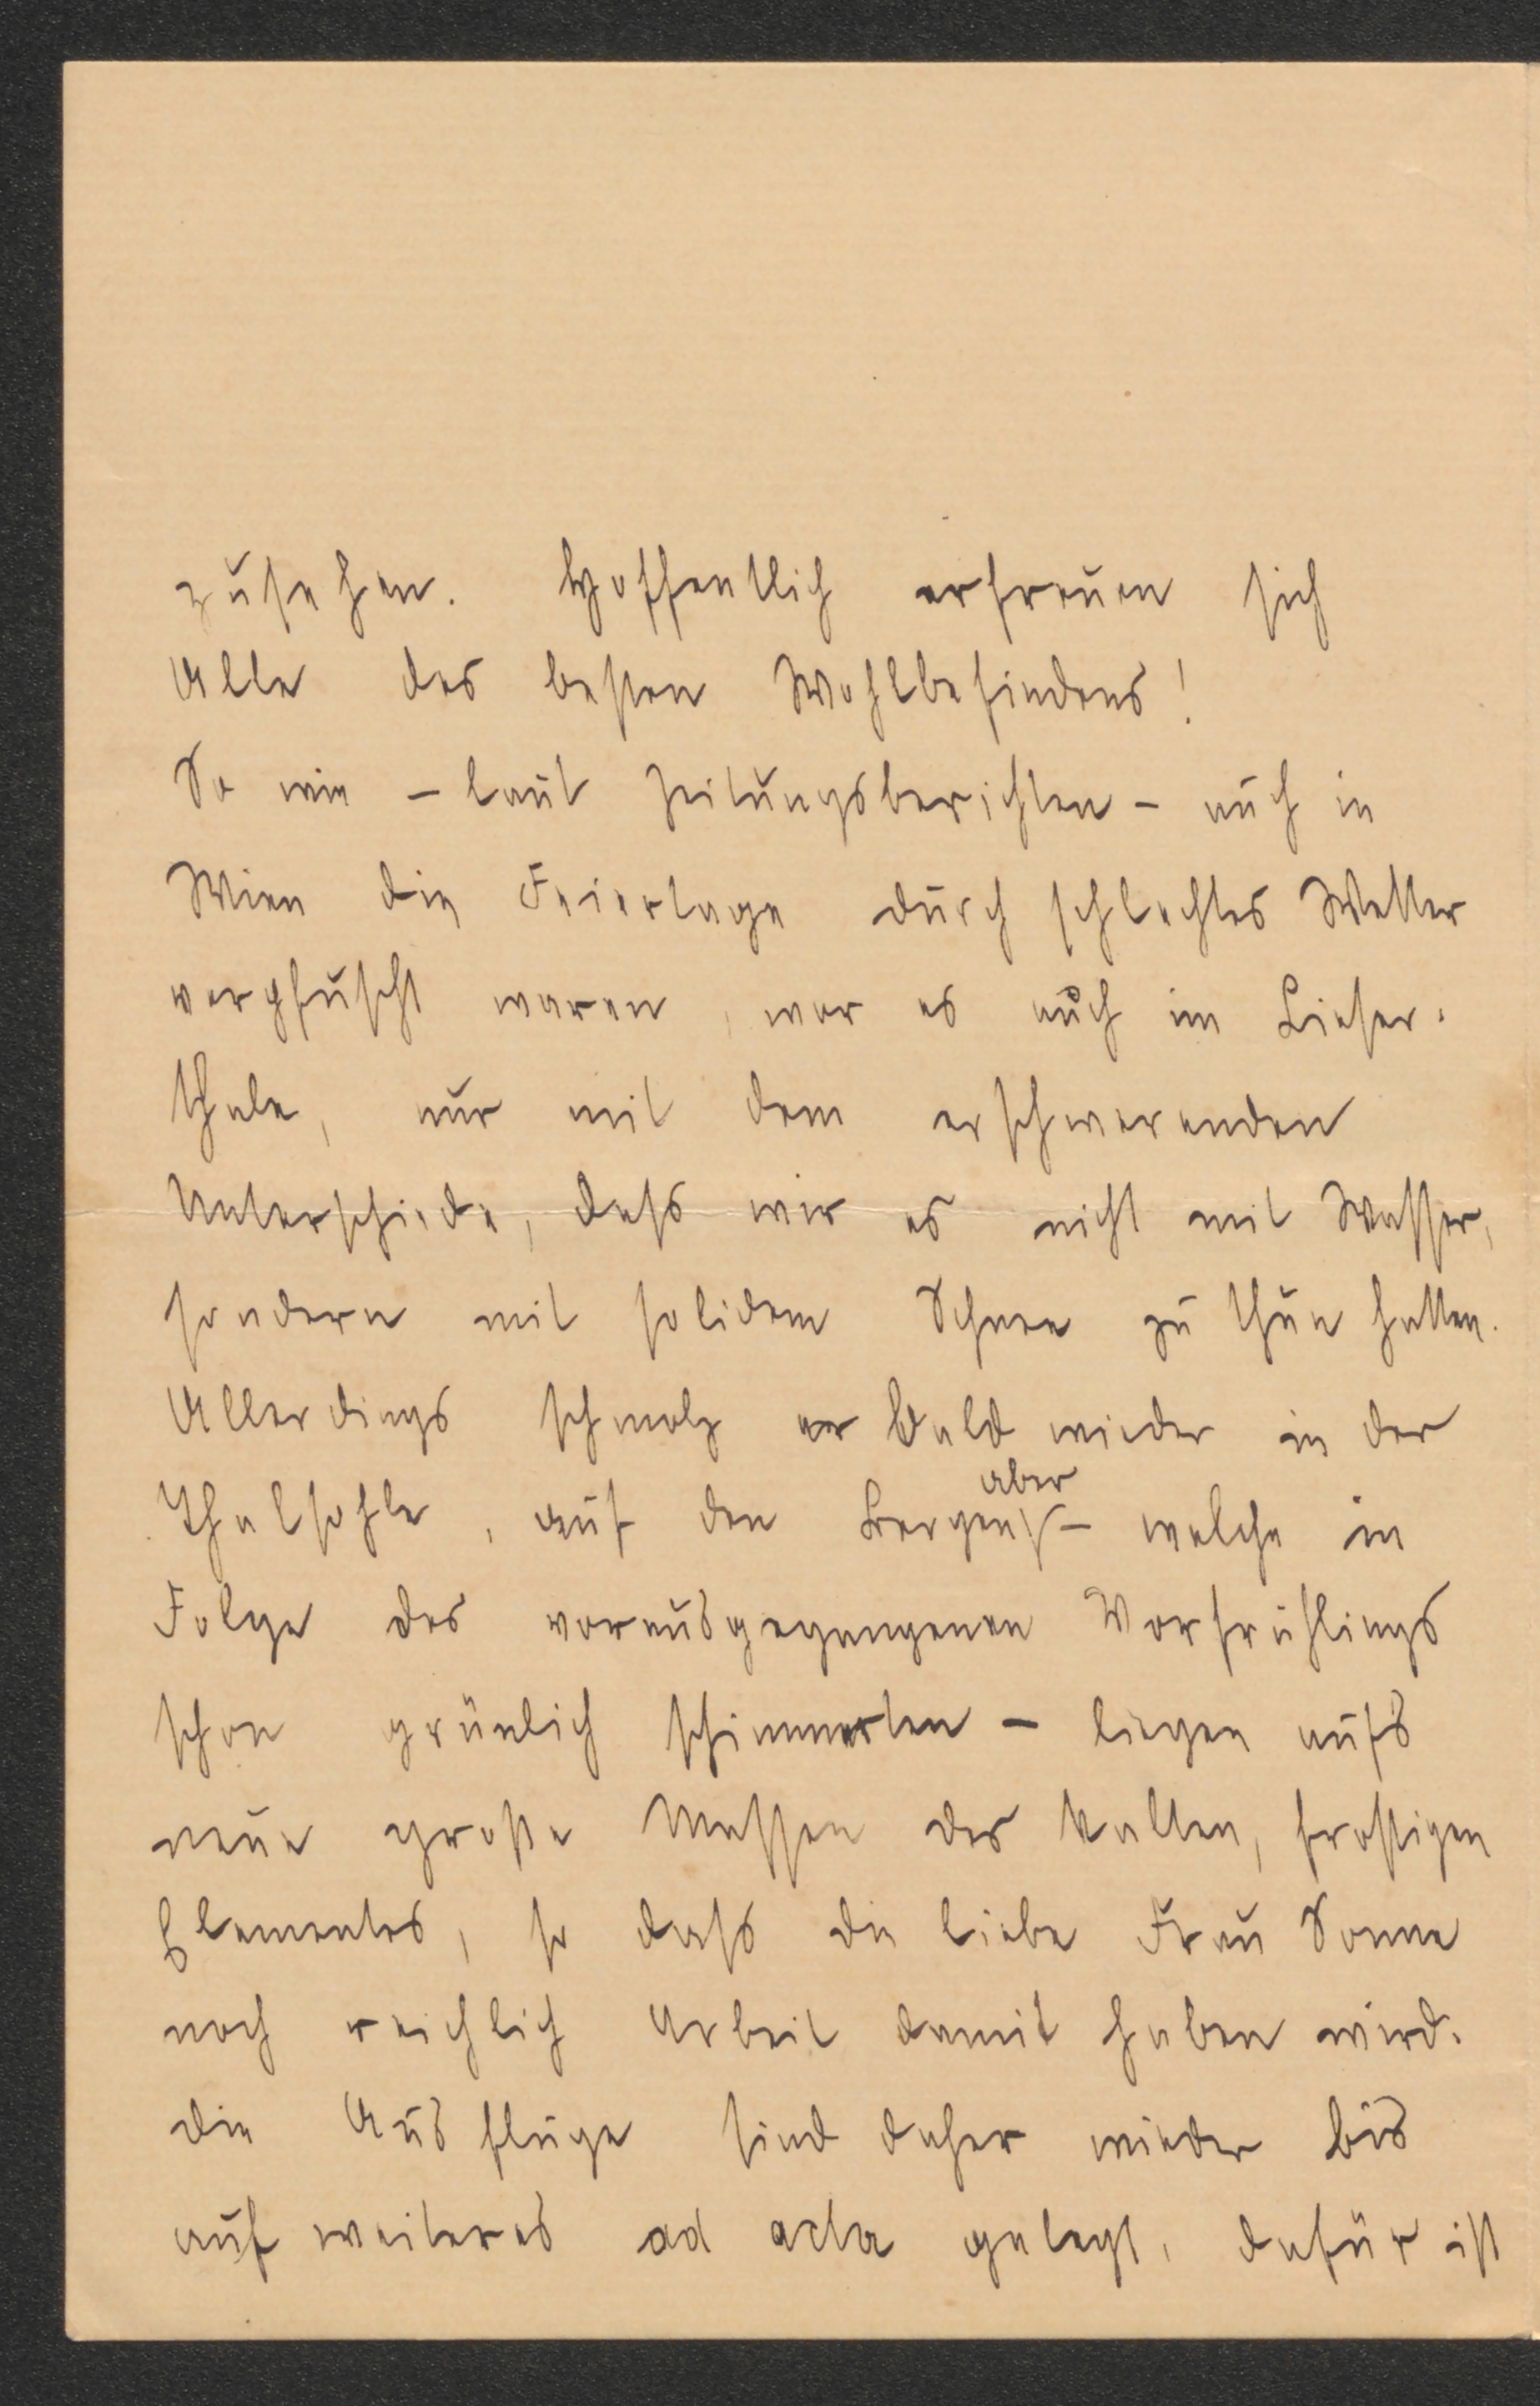 zusehen. Hoffentlich erfreuen sich
Alle des besten Wohlbefindens!
So wie – laut Zeitungsberichten – auch in
Wien die Feiertage durch schlechtes Wetter
verpfuscht waren, war es auch im Lieser-
thale, nur mit dem erschwerenden
Unterschiede, dass wir es nicht mit Wasser,
sondern mit solidem Schnee zu thun hatten.
Allerdings schmolz er bald wieder in der
Thalsohle, auf den Bergen aber – welche in
Folge des vorausgegangenen Vorfrühlings
schon grünlich schimmerten – liegen aufs
neue große Massen des kalten, frostigen
Elementes, so dass die liebe Frau Sonne
noch reichlich Arbeit damit haben wird.
Die Ausflüge sind daher wieder bis
auf weiteres ad acta gelegt, dafür ist